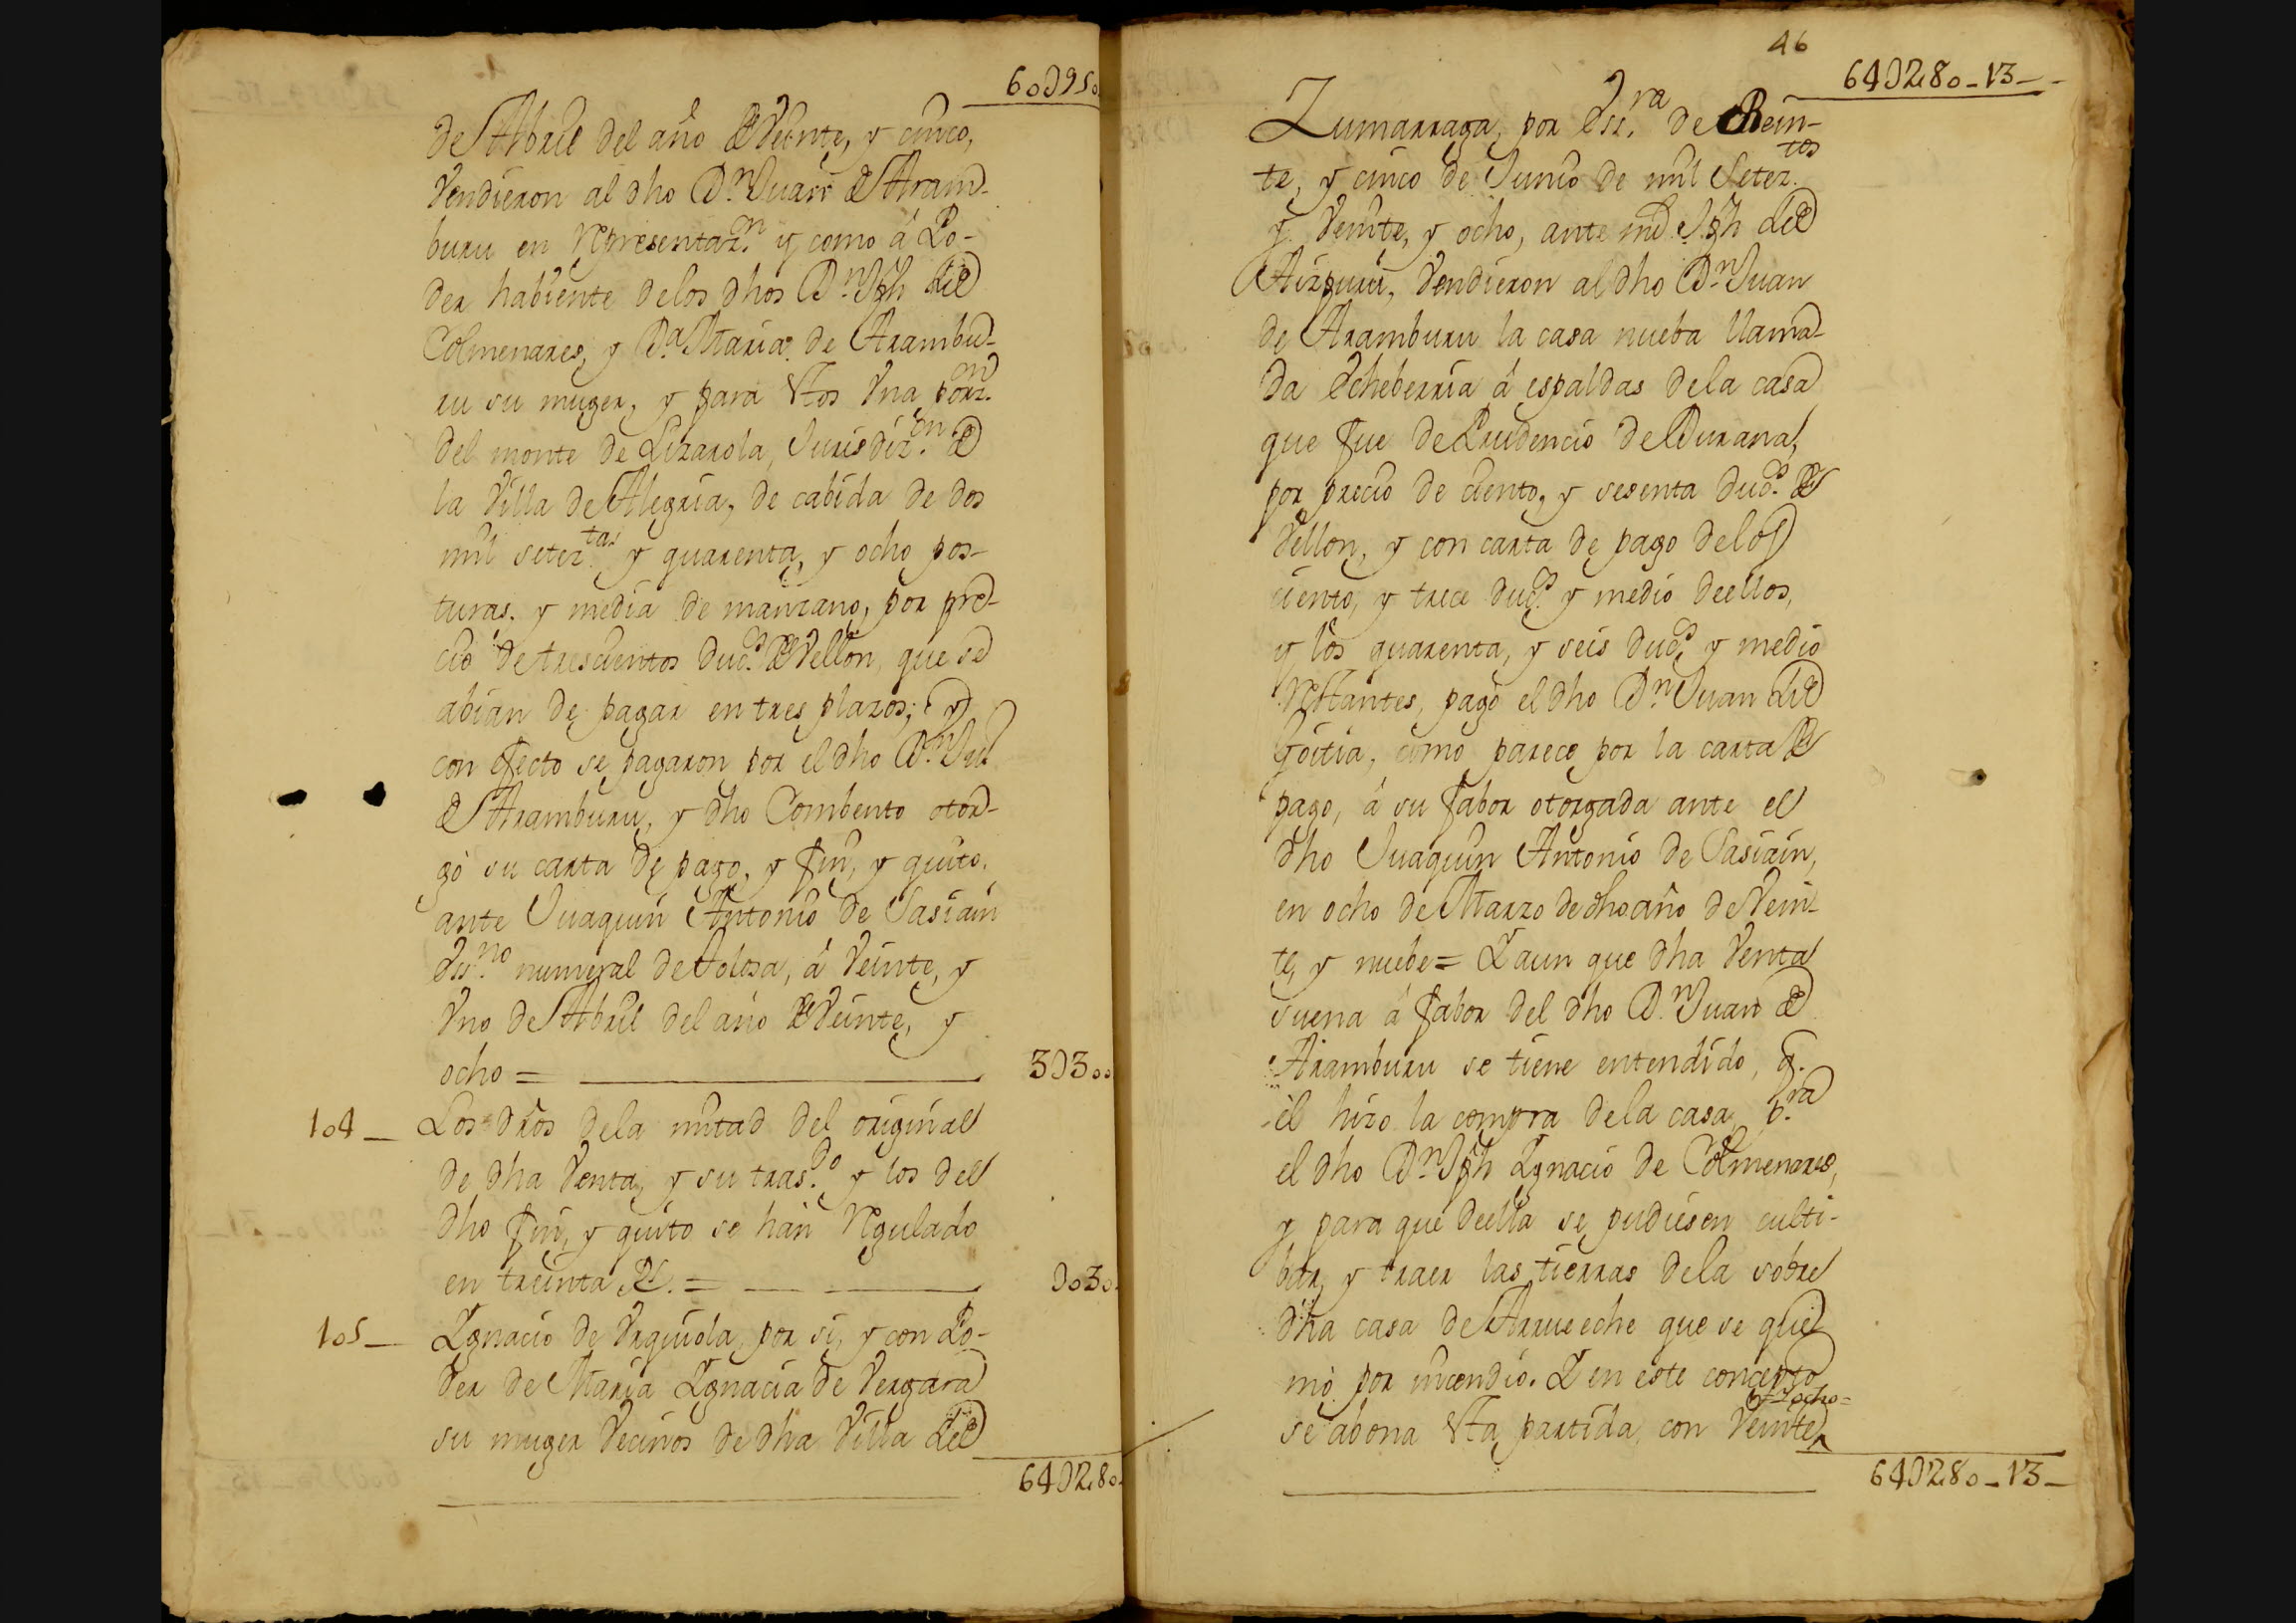 60095
de Abril del año de Veinte, y cinco,
Vendieron al dho Dn. Juan de Aram-
buru en representaz.n y como á Po-
der habiente delos dhos Dn. Jph de
Colmenares, y Da. Maria de Arambu-
ru su muger, y para Estos Vna porz.on
del monte de Lizarola, Jurisdiz.on de
la Villa de Alegria, de cabida de dos
mil setez.tas y quarenta, y ocho pos-
turas. y media de manzano, por pre-
cio de trescientos duc.s de Vellon, que se
abian de pagar en tres plazos; y
con efecto se pagaron por el dho Dn. Jun
de Aramburu, y dho Combento otor-
gó su carta de pago, y fin, y quito,
ante Juaquin Antonio de Sasiain
Es.no numeral de Tolosa, á Veinte, y
Vno de Abril del año de Veinte, y
ocho = 3D300
104 _ Los dros dela mitad del original
de dha Venta, y su tras.do y los del
dho fin, y quito se han regulado
en treinta Rs. = D030
105 _ Ygnacio de Vrquiola, por si, y con Po-
der de Maria Ygnacia de Vergara
su muger Vecinos de dha Villa de
64D280
46
64D280-13-
Zumarraga, por Esr.ra de Vein-
te, y cinco de Junio de mil Setez.tos
y Veinte, y ocho, ante mi Jph de
Aizpuru, Vendieron al dho Dn. Juan
de Aramburu la casa nueba llama-
da Echeberria á espaldas dela casa
que fue de Prudencio de Durana,
por precio de ciento, y sesenta duc.s de
Vellon, y con carta de pago delos
ciento, y trece duc.s y medio deellos,
y los quarenta, y seis duc.s y medio
restantes, pagó el dho Dn. Juan de
Goitia, como parece por la carta de
pago, á su fabor otorgada ante el
dho Juaquin Antonio de Sasiain,
en ocho de Marzo de dho año de Vein-
te, y nuebe = Y aun que dha Venta
suena á fabor del dho Dn. Juan de
Aramburu se tiene entendido, q.
él hizo la compra dela casa, p.ra
el dho Dn. Jph Ygnacio de Colmenares,
y para que deella se pudiesen culti-
bar, y traer las tierras dela sobre
dha casa de Arrueeche que se que
mó por incendio. Y en este concepto
y ocho=
se abona Esta partida, con Veinte
64D280-13-